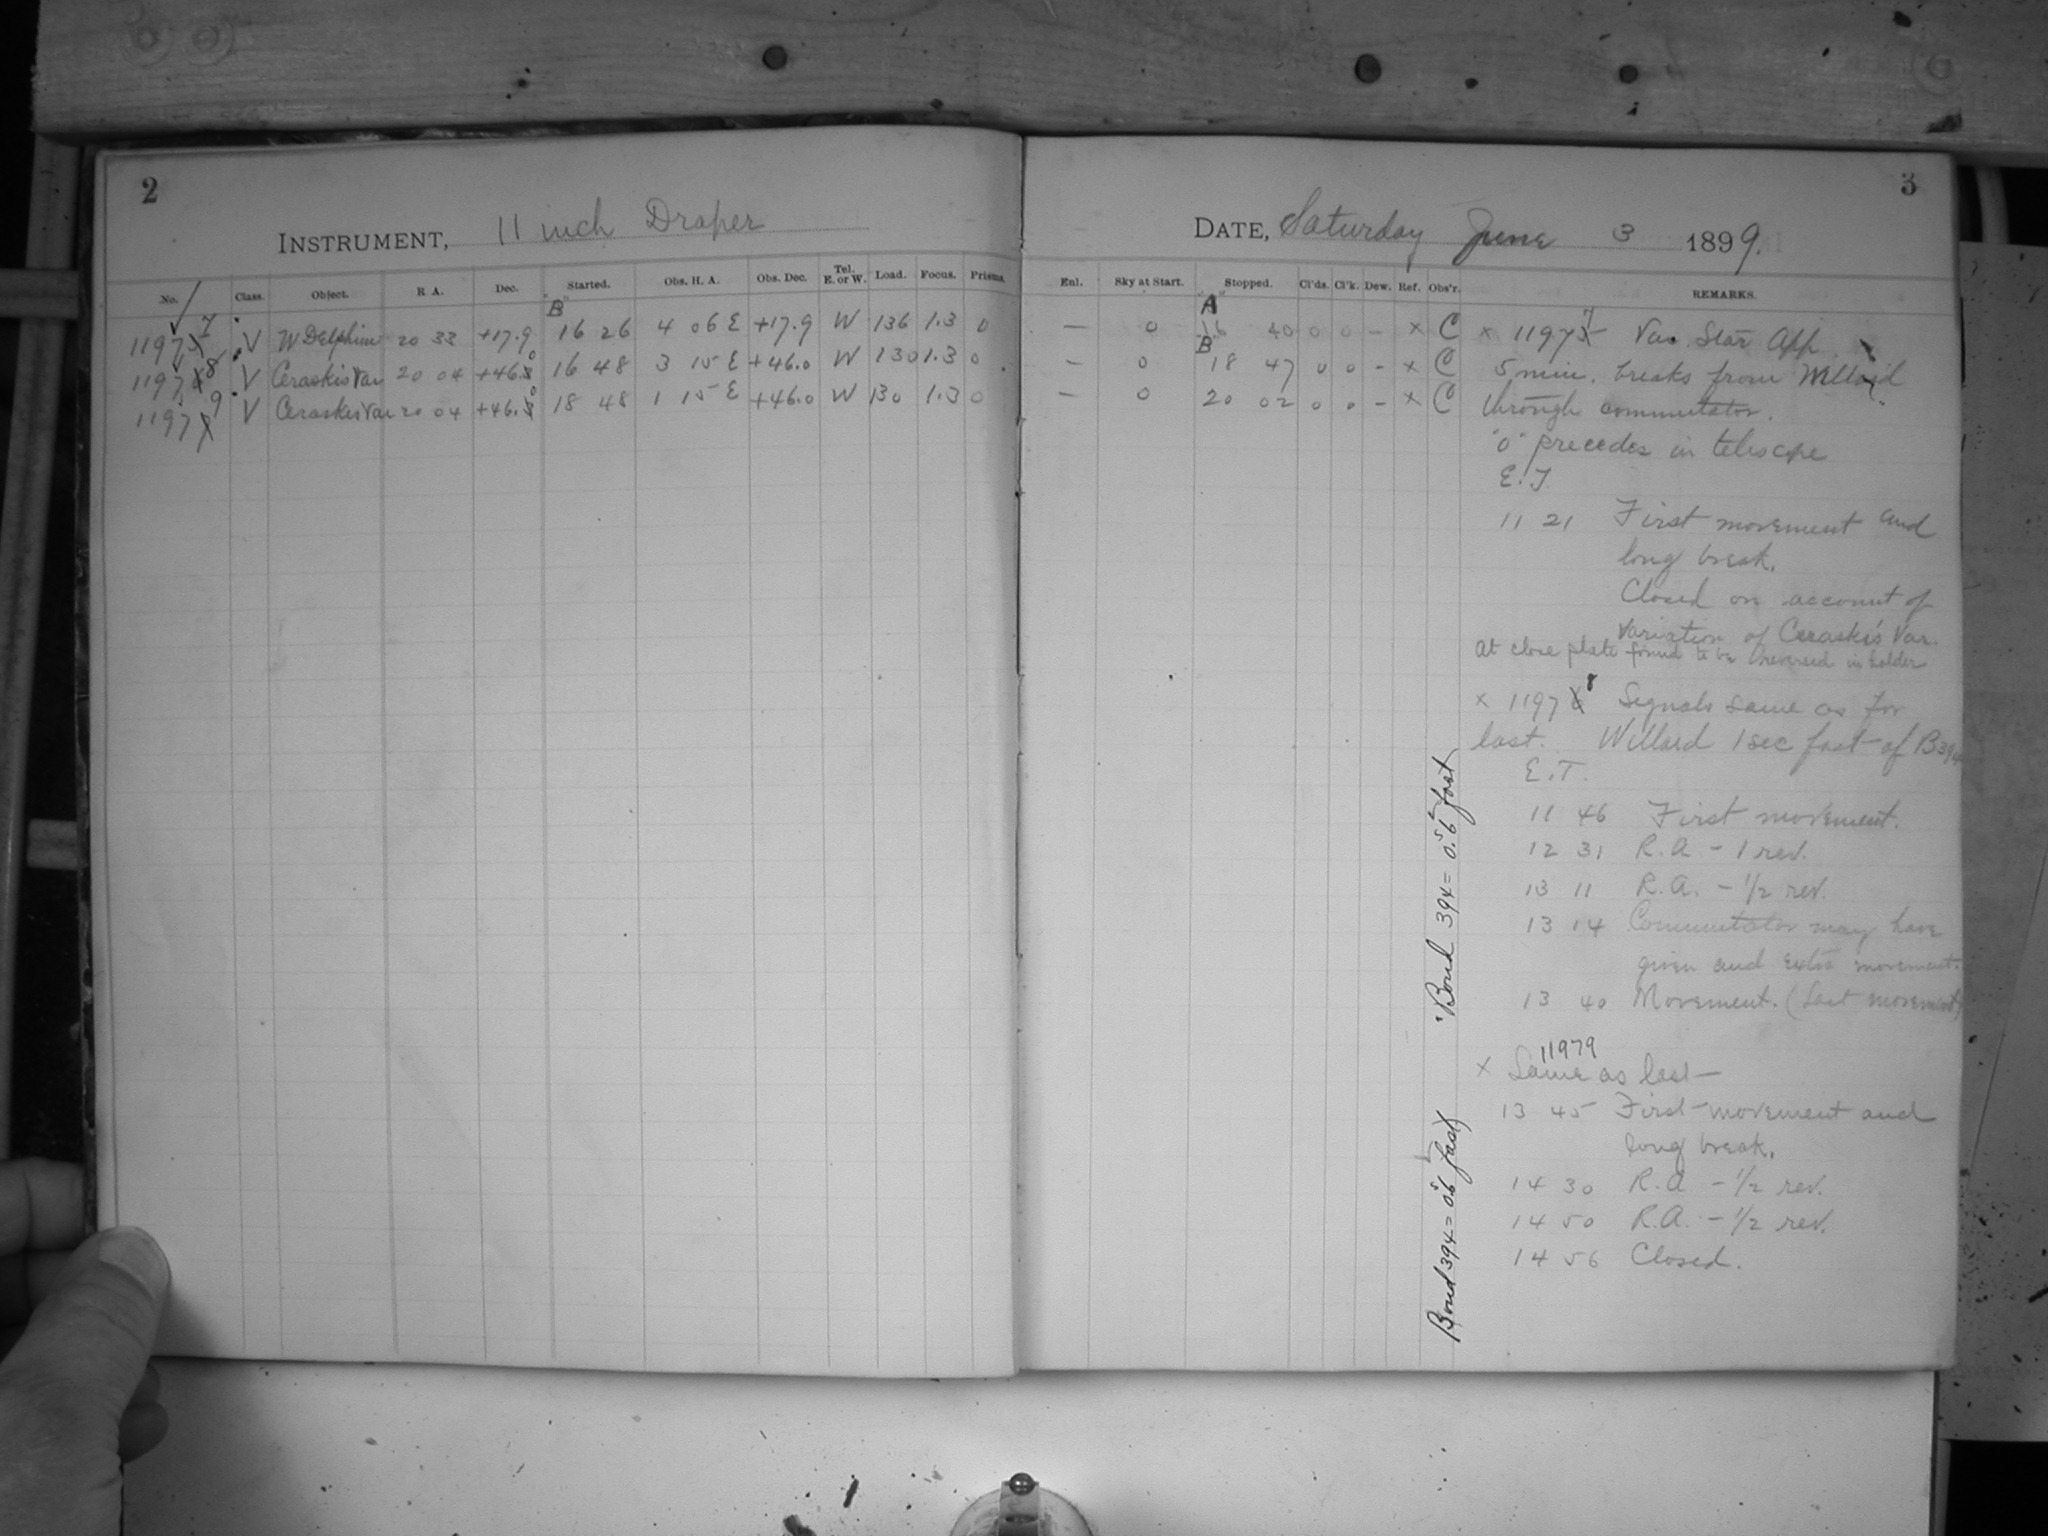 2
INSTRUMENT, 11 inch Draper
No. Class. Object. R. A. Dec. Started. Obs. H. A. Obs. Dec. Tel. E. or W. Load. Focus. Prisms.
B
11977 V W Delphini 20 33 +17.9 16 26 4 06 E +17.9 W 136 1.3 0
11978 V Ceraskis Var 20 04 +46.0 16 48 3 15 E +46.0 W 130 1.3 0
11979 V Ceraskis Var 20 04 +46.0 18 48 1 15 E +46.0 W 130 1.3 0
3
DATE, Saturday June 3 1899.
Enl. Sky at Start. Stopped. Cl'ds. Cl'k. Dew. Ref. Obs'r. REMARKS.
A
— 0 16 40 0 0 – x C
B
— 0 18 47 0 0 – x C
— 0 20 02 0 0 – x C
x 11977 Var. Star App.
5 min. breaks from Willard
through commutator.
"0" precedes in telescope
E. T.
11 21 First movement and
long break.
Closed on account of
variation of Ceraski's Var.
At close plate found to be reversed in holder
x 11978 Signals same as for
last. Willard 1 sec fast of B394
E. T.
11 46 First movement.
12 31 R.A. – 1 rev.
13 11 R.A. – 1/2 rev.
13 14 Commutator may have
given and extra movement.
13 40 Movement. (Last movement)
11979
x Same as last—
13 45 First movement and
long break.
14 30 R.A – 1/2 rev.
14 50 R.A. – 1/2 rev.
14 56 Closed.
Bond 394 = 0.56 fast
Bond 394 = 0.6 fast